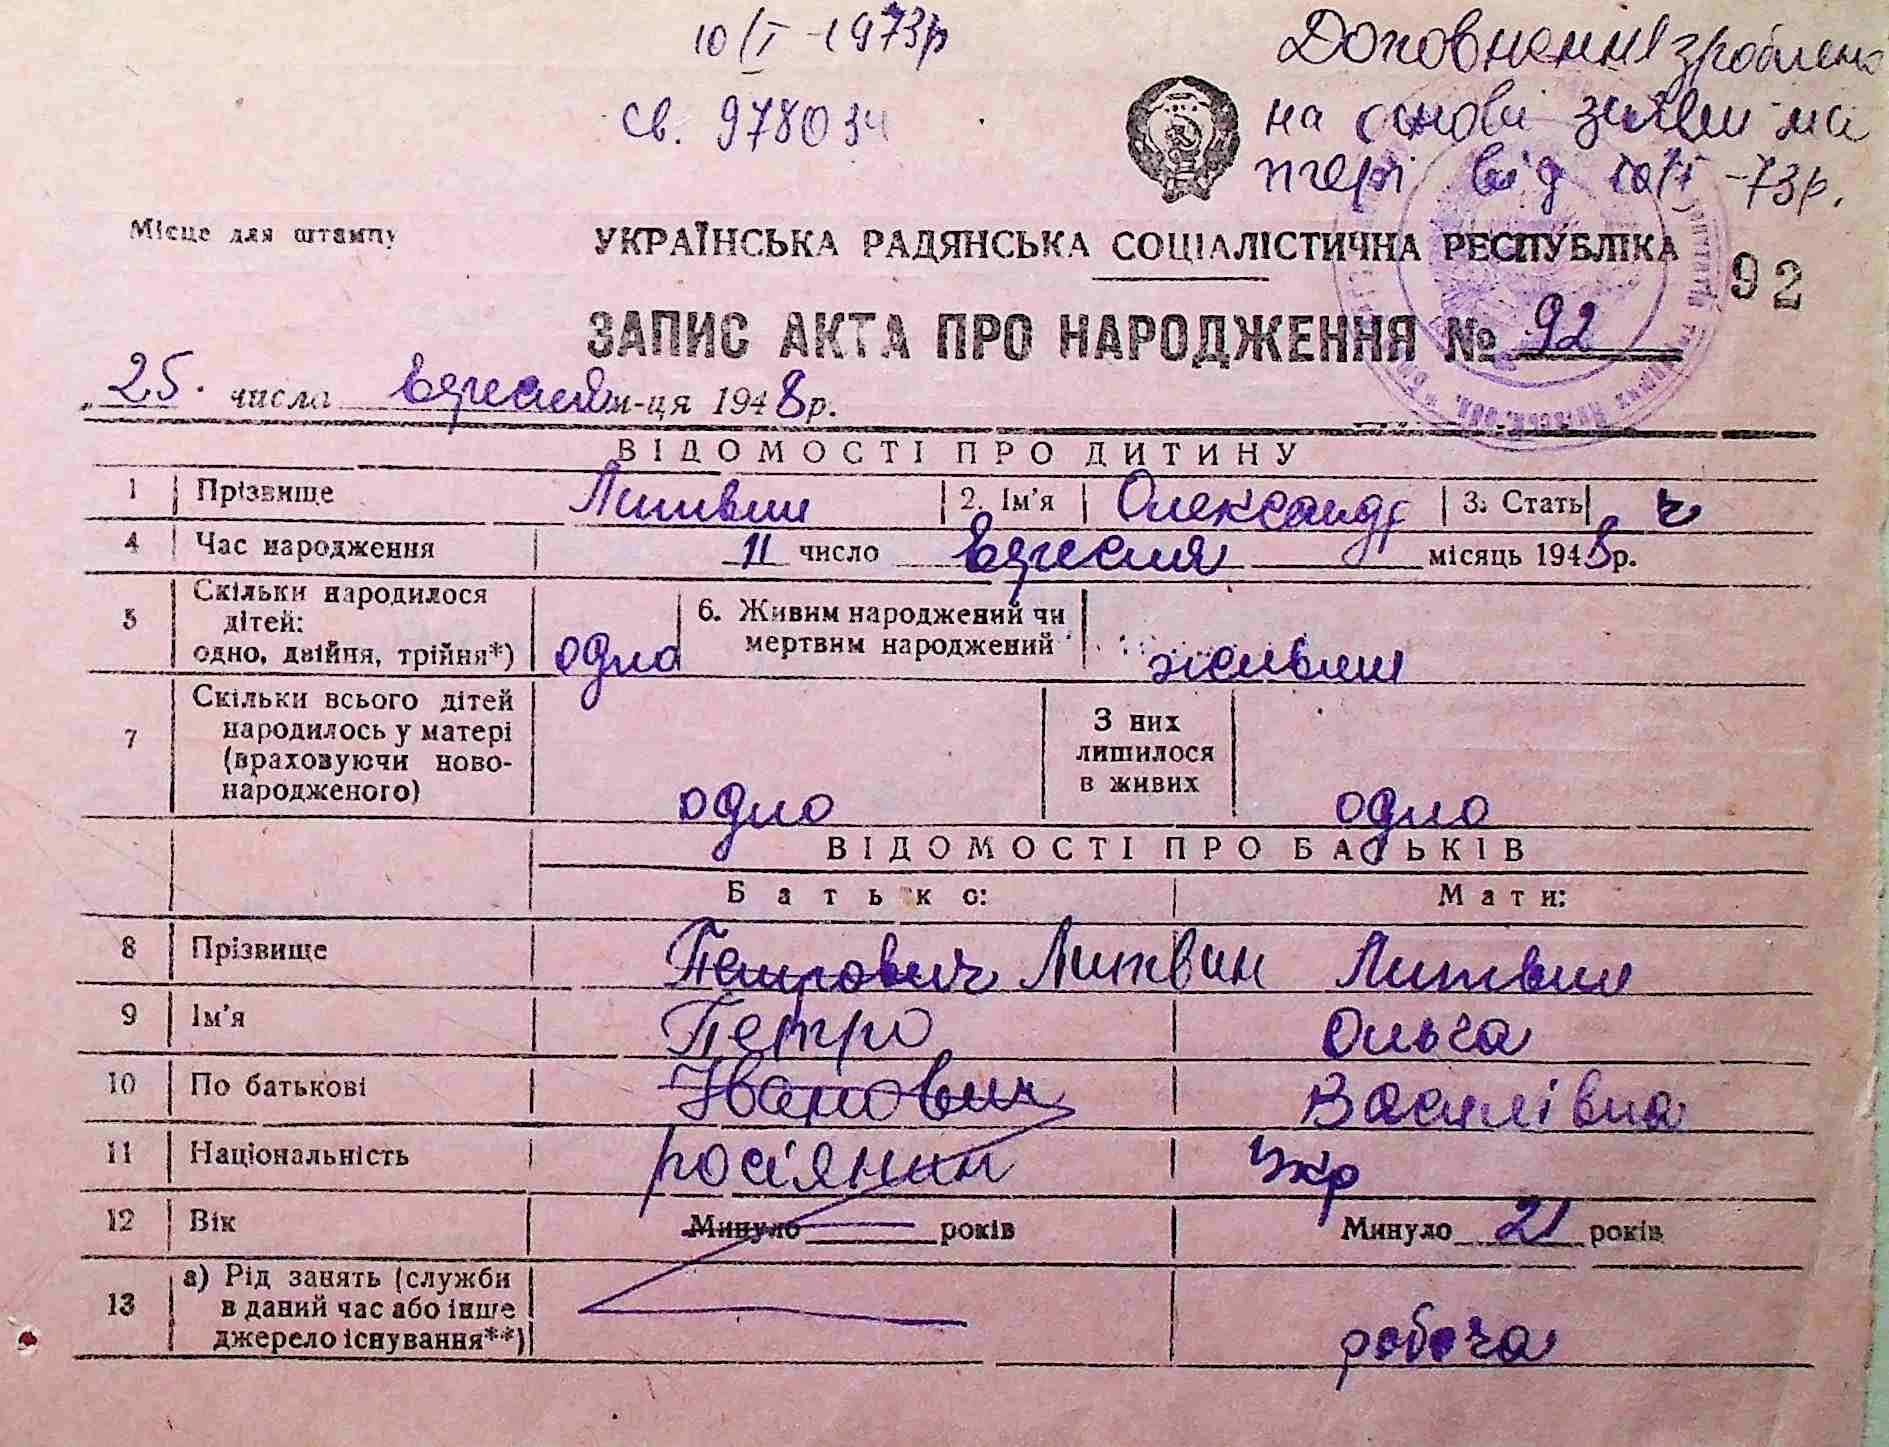 10/I-1973р
Св. 978034
Доповненні зроблено
на основі заяви ма
тері від 10/I-73р.
Місце для штампу
УКРАЇНСЬКА РАДЯНСЬКА СОЦІАЛІСТИЧНА РЕСПУБЛІКА
92
ЗАПИС АКТА ПРО НАРОДЖЕННЯ № 92
„25. числа вересня м-ця 1948р.
ВІДОМОСТІ ПРО ДИТИНУ
1 Прізвище Литвин 2. Ім'я Олександр 3. Стать ч
4 Час народження 11 число вересня місяць 1948р.
5 Скільки народилося
дітей:
одно, двійня, трійня*) одно
6. Живим народжений чи
мертвим народжений живим
7 Скільки всього дітей
народилось у матері
(враховуючи ново-
народженого) одно
З них
лишилося
в живих одно
ВІДОМОСТІ ПРО БАТЬКІВ
Батько: Мати:
8 Прізвище Петрович Литвин Литвин
9 Ім'я Петро Ольга
10 По батькові Іванович Василівна
11 Національність росіянин Укр
12 Вік Минуло років Минуло 21 років
13 а) Рід занять (служби
в даний час або інше
джерело існування**) робоча